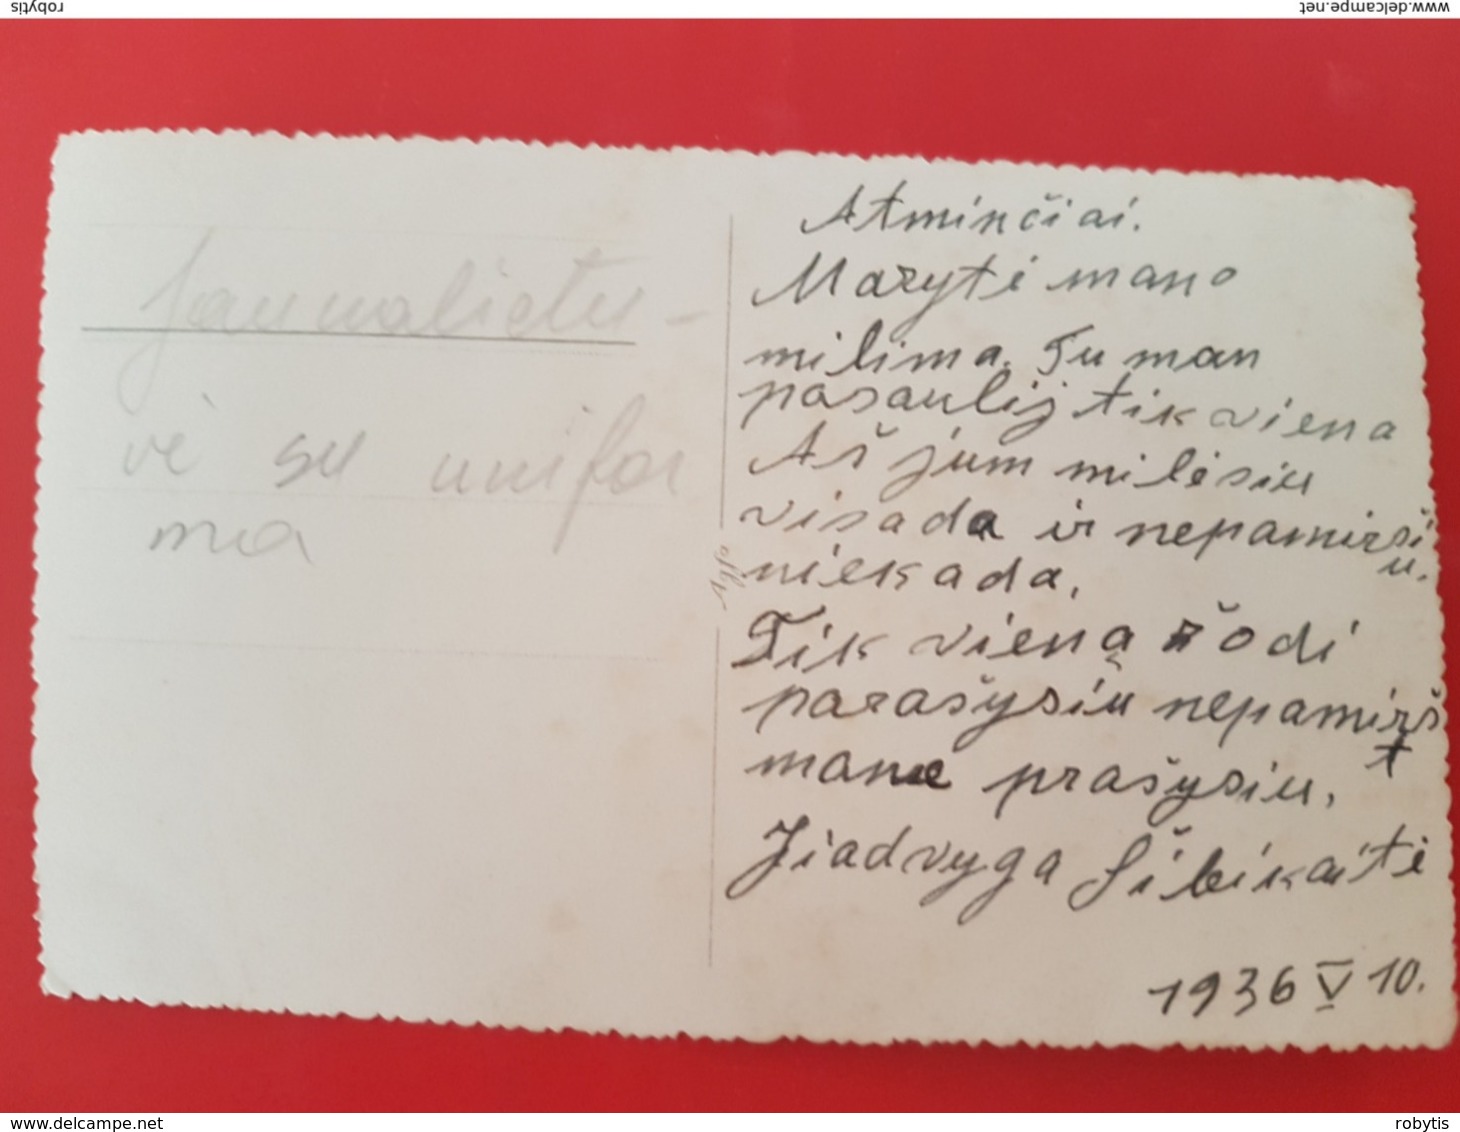 www.delcampe.net
robytis
Jaunalietu-
vė su unifor
ma
Atminčiai.
Marytė mano
milima. Tu man
pasaulij tik viena
Aš jum milėsiu
visada ir nepamirši
u.
niekada.
Tik vieną žodi
parašysiu nepamirš
t
mane prašysiu.
Jiadvyga Šibikaitė
1936 V 10.
www.delcampe.net
robytis